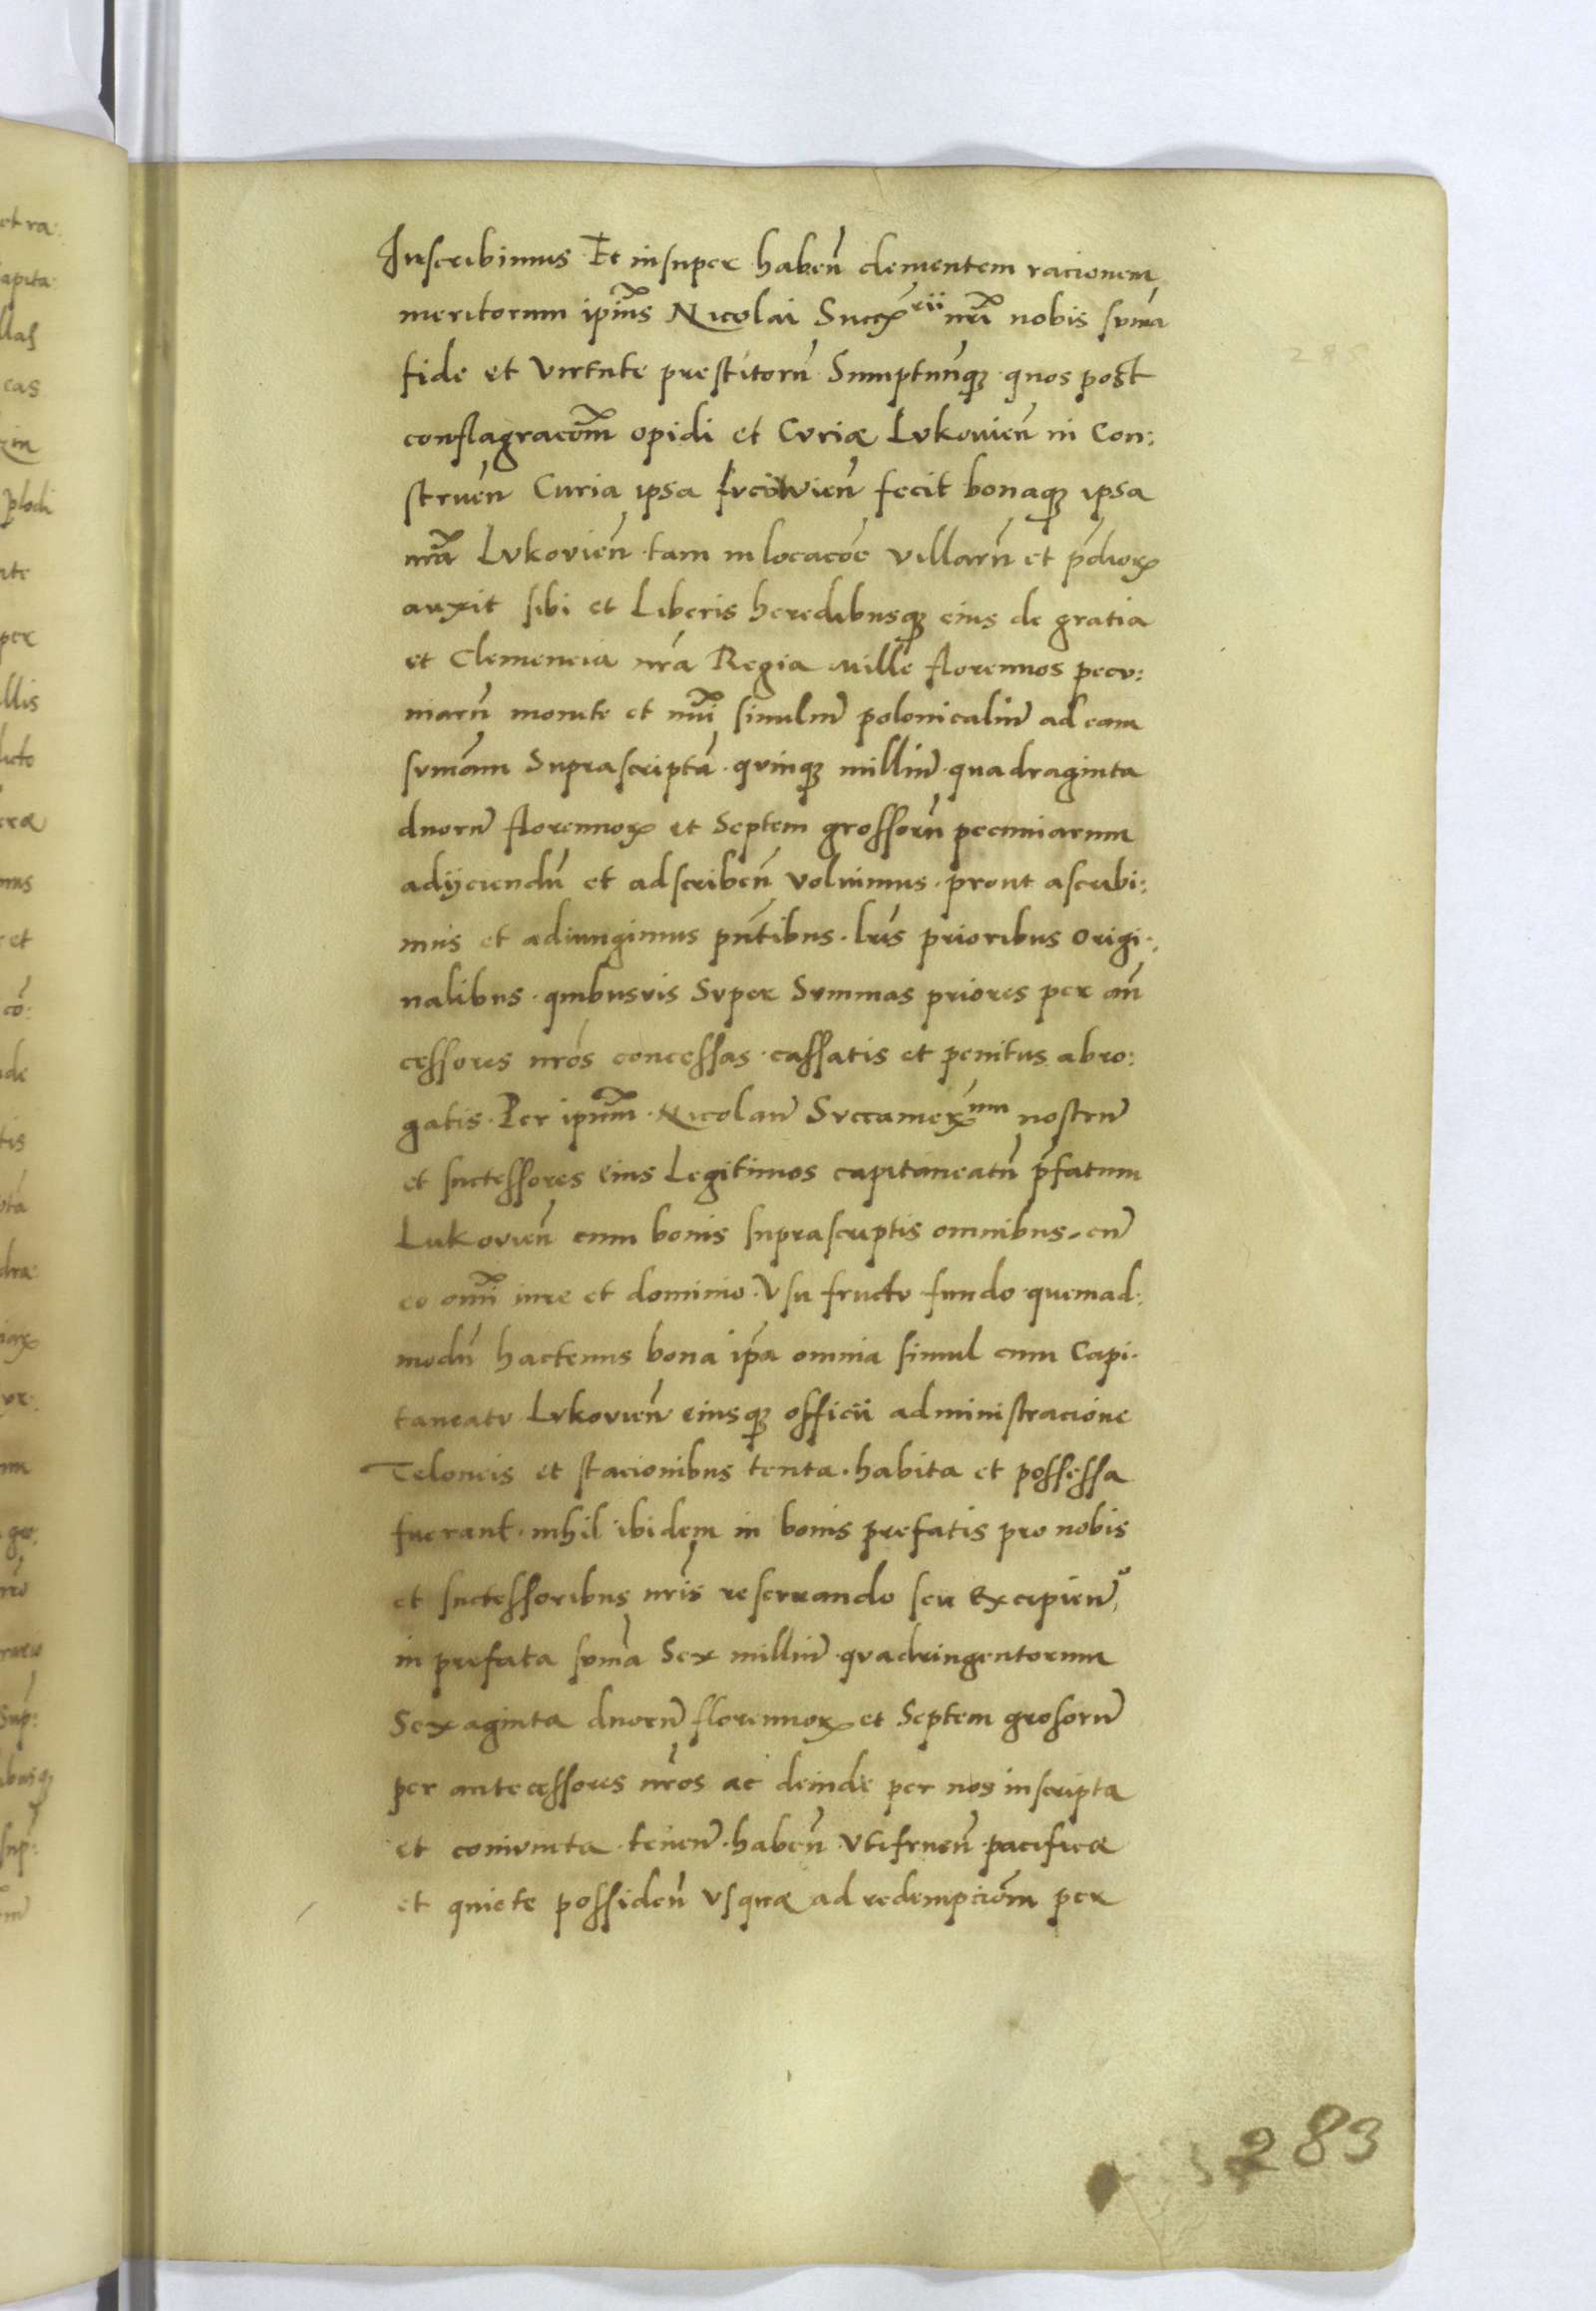 Inscribimus Et insuper habeñ clementem racionem
meritorum ip̃ius Nicolai Succ̃rii nr̃i nobis sum̃a
fide et virtute prestitorũ Sumptuũq; quos post
conflagracõm opidi et Curiæ Lukouieñ in Con:
strueñ Curia ipsa Lucowieñ fecit bonaq; ipsa
nr̃a Lukovieñ tam in locacõe villarũ et p̃dior̃
auxit sibi et Liberis heredibusq; eius de gratia
et Clemencia nr̃a Regia Mille florenos pecu:
niarũ monete et nũi simul in polonicaliũ ad eam
sum̃am Suprascriptã quinq; milliũ quadraginta
duorũ florenor̃ et Septem grossorũ pecuniarum
adijciendũ et adscribeñ voluimus prout ascribi:
mus et adiungimus pñtibus lr̃is prioribus origi:
nalibus quibusvis Super Summas priores per añ
cessores nr̃os concessas cassatis et penitus abro:
gatis Per ip̃um Nicolaũ Succamer̃num nostrũ
et successores eius Legitimos capitaneatũ p̃fatum
Lukovieñ cum bonis suprascriptis omnibus cũ
eo om̃i iure et dominio Vsu fructu fundo quemad:
modũ hactenus bona ip̃a omnia simul cum Capi:
taneatu Lukovieñ eiusq; officii administracione
Teloneis et stacionibus tenta habita et possessa
fuerant nihil ibidem in bonis prefatis pro nobis
et successoribus nr̃is reseruando seu Excipieñ
in prefata sum̃a Sex milliũ quadringentorum
Sexaginta duorũ florenor̃ et Septem grosorũ
per antecessores nr̃os ac deinde per nos inscripta
et coniuncta teneñ habeñ Vtifrueñ pacificæ
et quiete possideñ vsquæ ad redempciõm per
283